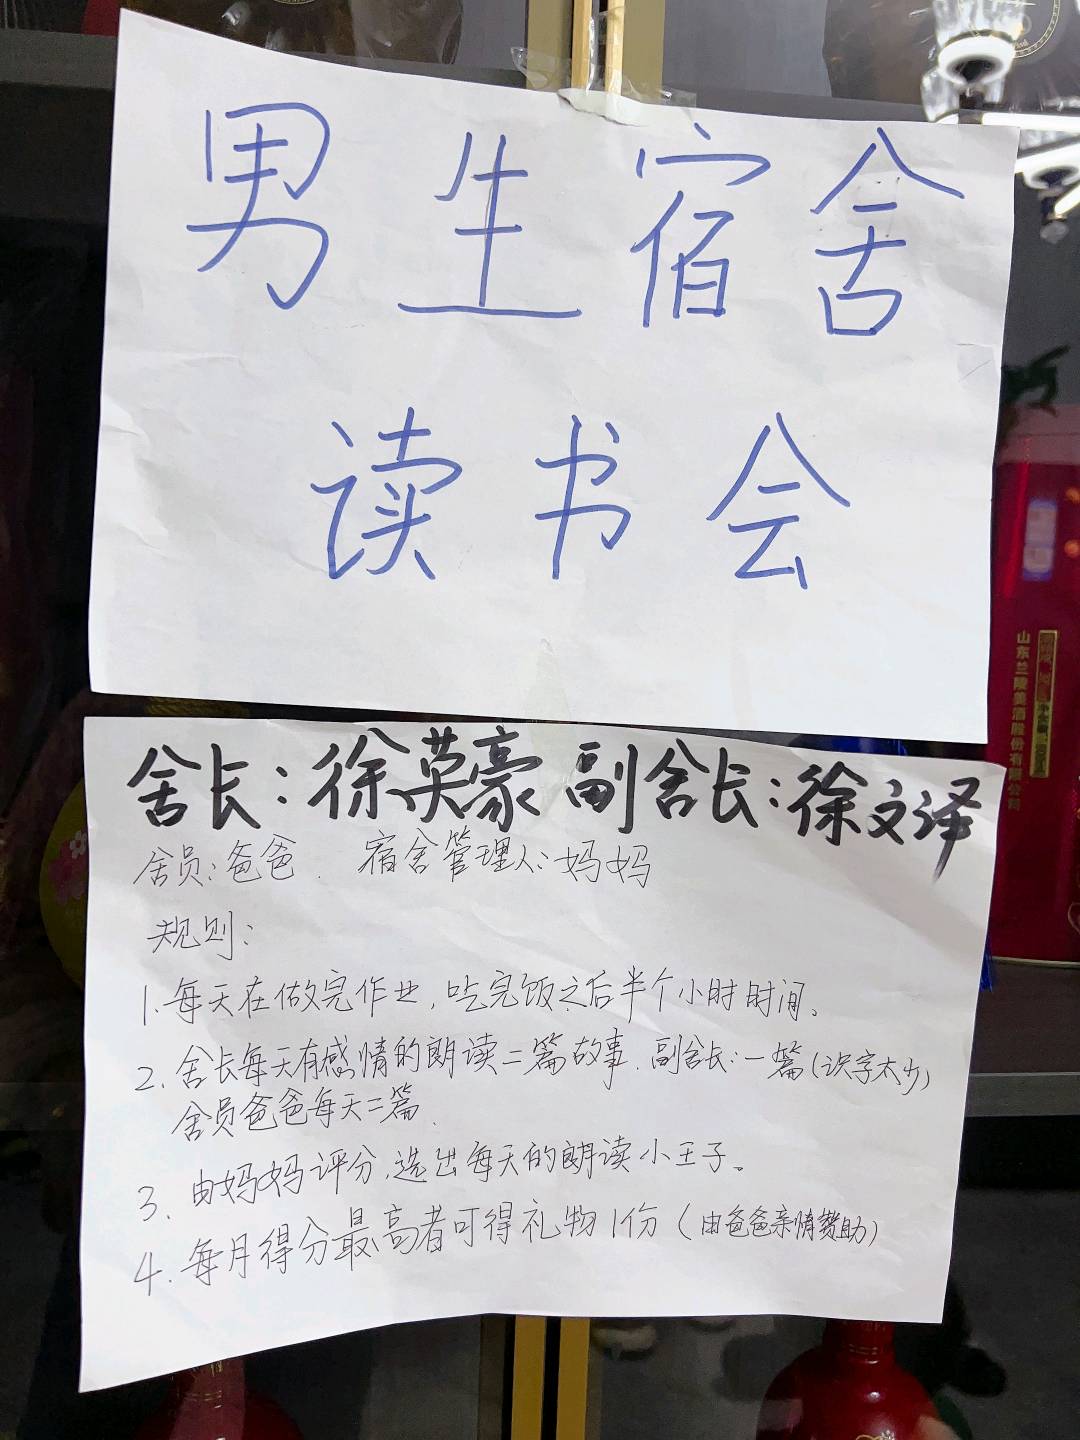 男生宿舍
读书会
舍长：徐英豪 副舍长：徐文译
舍员：爸爸. 宿舍管理人：妈妈
规则：
1.每天在做完作业，吃完饭之后半个小时时间。
2.舍长每天有感情的朗读二篇故事.副舍长：一篇（识字太少）
舍员爸爸每天二篇.
3.由妈妈评分,选出每天的朗读小王子。
4.每月得分最高者可得礼物1份（由爸爸亲情赞助）
山东兰陵美酒股份有限公司